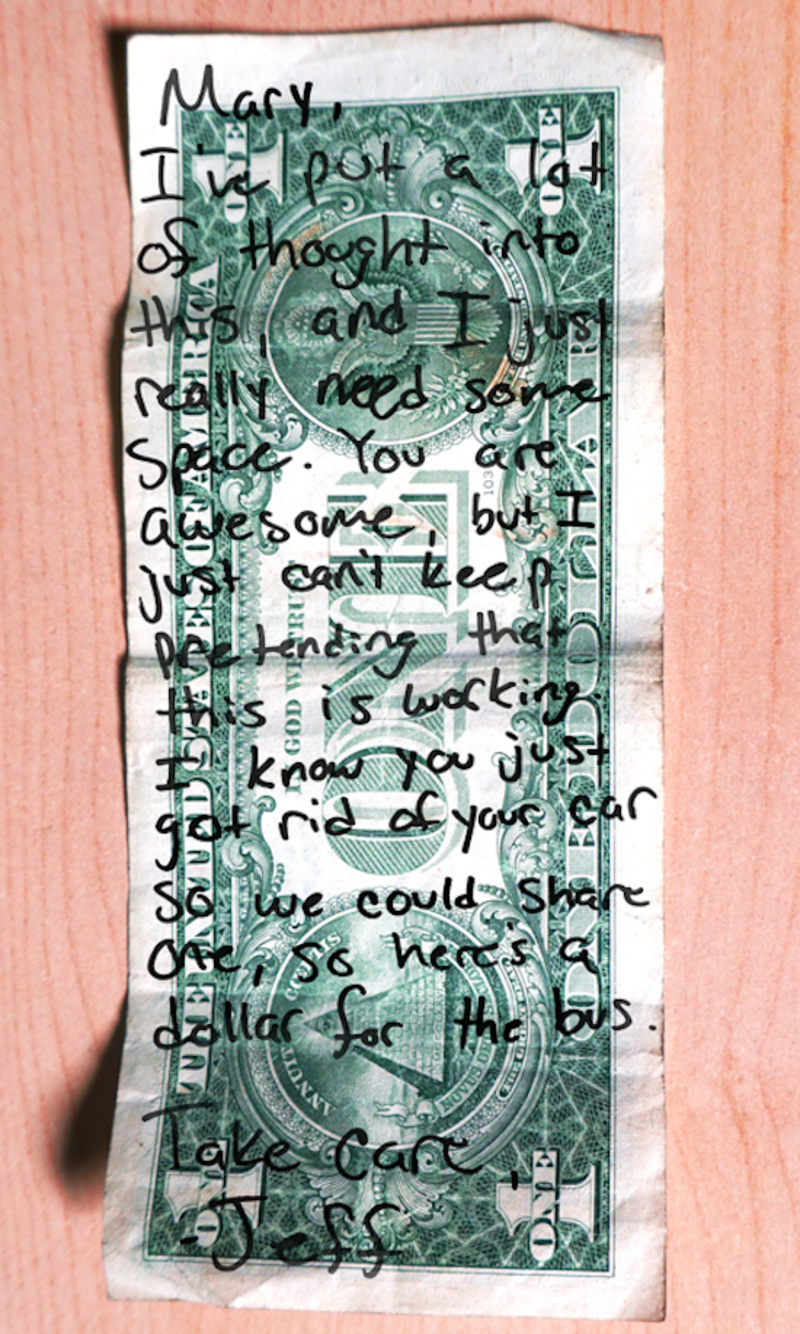 Mary,
I've put a lot
of thought into
this, and I just
really need some
space. You are
awesome, but I
just can't keep
pretending that
this is working.
I know you just
got rid of your car
so we could share
one, so here's a
dollar for the bus.
Take care,
-Jeff
THE UNITED STATES OF AMERICA
IN GOD WE TRUST
ONE
ONE DOLLAR
ANNUIT COEPTIS
1
ONE
1
ONE
1
ONE
1
ONE
103